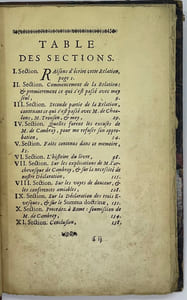 TABLE
DES SECTIONS.
I. Section. Raisons d'écrire cette Relation,
page 1.
II. Section. Commencement de la Relation:
& premierement ce qui s'est passé avec moy
seul, 9.
III. Section. Seconde partie de la Relation,
contenant ce qui s'est passé avec M. de Chaalons,
M. Tronson, & moy, 29.
IV. Section. Quelles furent les excuses de
M. de Cambray, pour me refuser son approbation, 54.
V. Section. Faits contenus dans ce memoire,
VI. Section. L'histoire du livre, 98.
VII. Section. Sur les explications de M. l'archevesque
de Cambray, & sur la necessité de
nostre Déclaration, 115.
VIII. Section. Sur les voyes de douceur, &
les conferences amiables, 118.
IX. Section. Sur la Declaration des trois Evesques,
& sur le Summa doctrinæ,
X. Section. Procedez à Rome: soumission de
M. de Cambray, 134.
XI. Section. Conclusion, 138.
ã ij